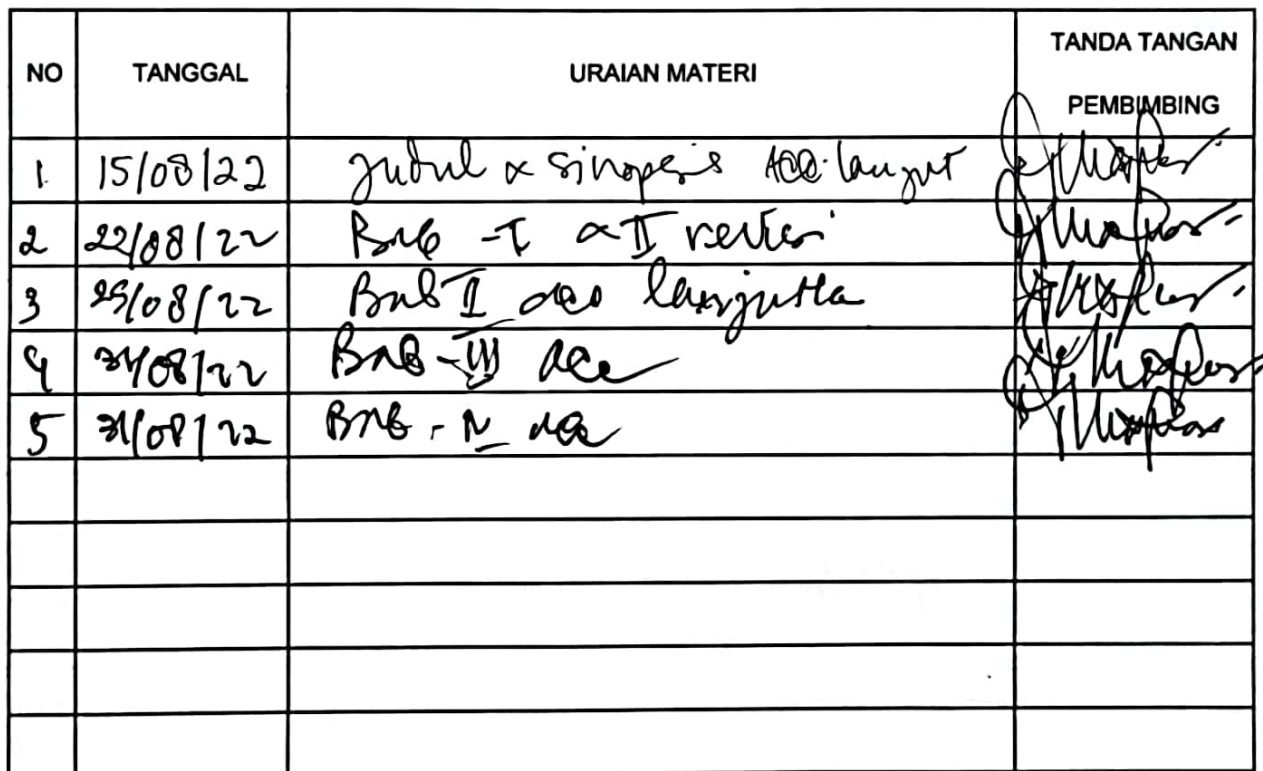 NO TANGGAL URAIAN MATERI TANDA TANGAN PEMBIMBING
1. 15/08/22 Judul & sinopsis ACC lanjut
2 22/08/22 BAB - I & II revisi
3 25/08/22 BAB II acc lanjutka
4 /08/22 BAB - III acc
5 31/08/22 BAB - IV acc